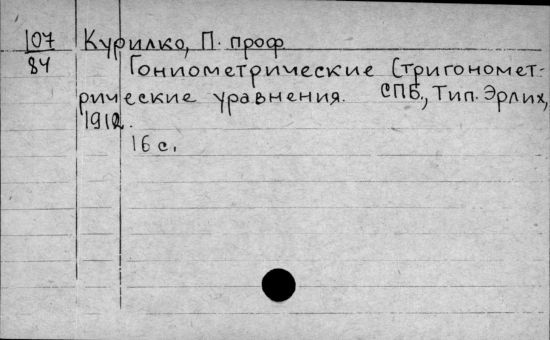 107 Курилко, П. проф.
84 Гониометрические (тригономет-
рические уравнения. СПБ., Тип. Эрлих,
1912.
16 с.